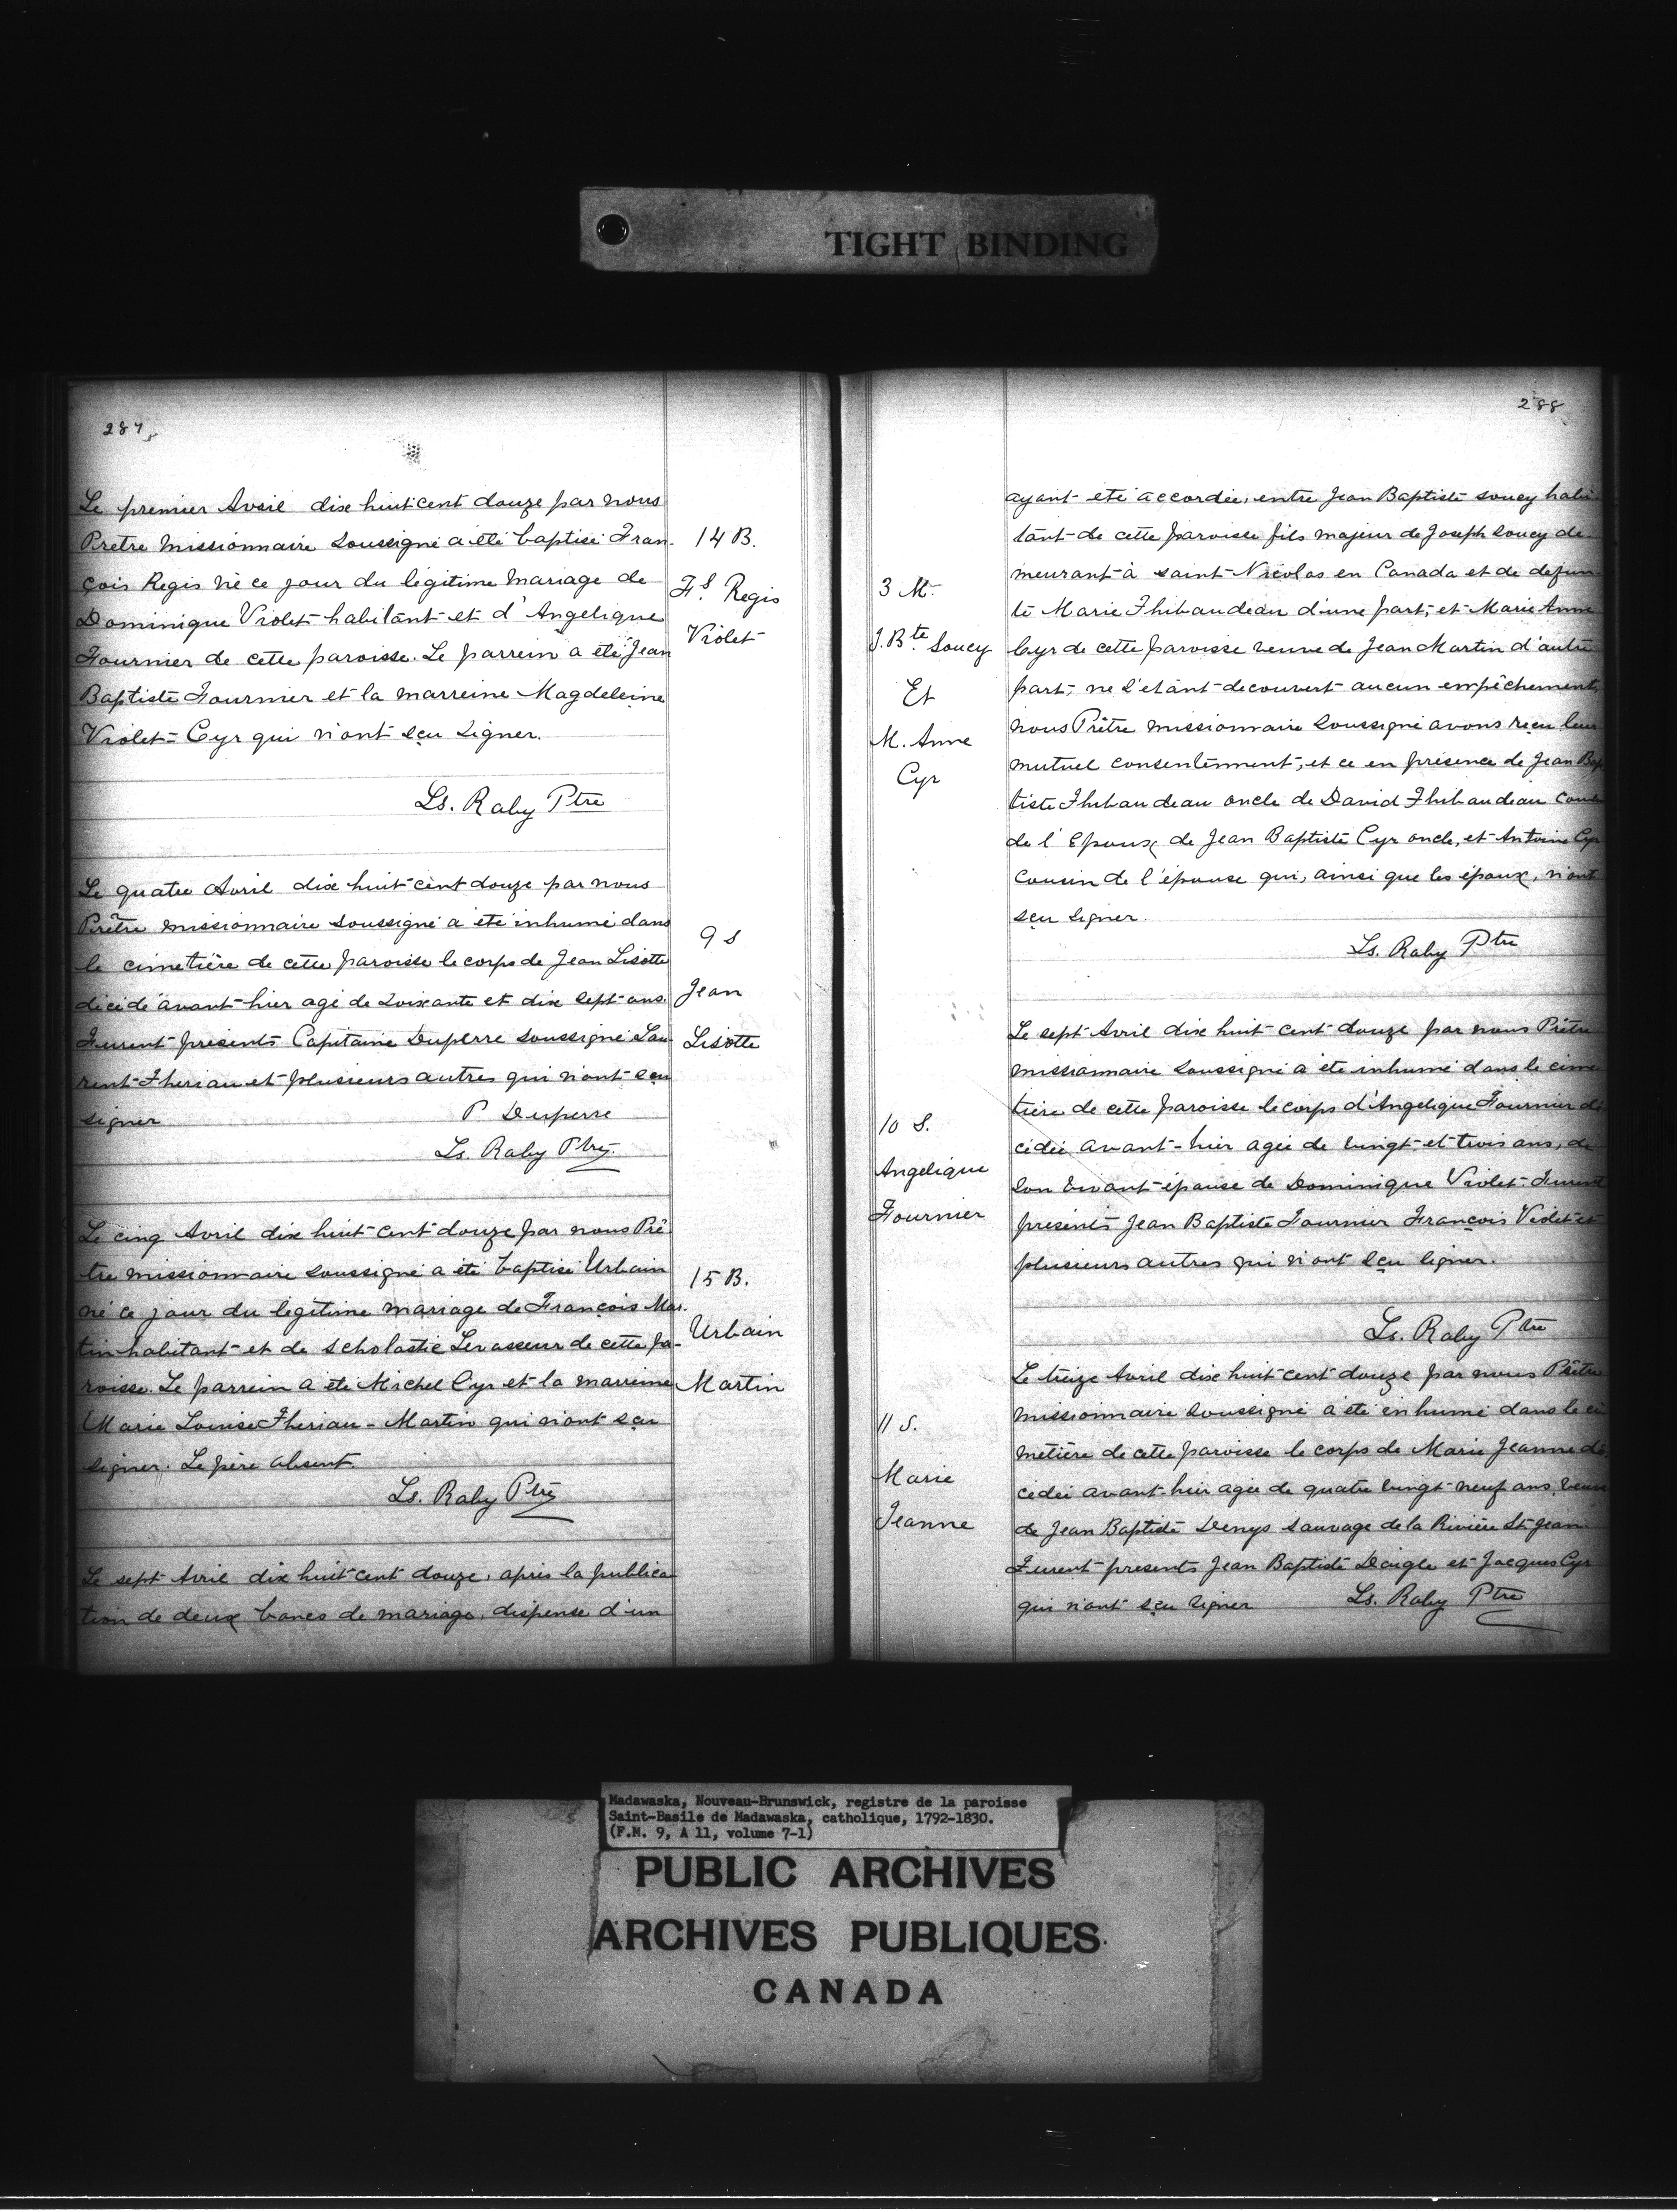 TIGHT BINDING
287
Le premier Avril dix huit cent douze par nous
Prêtre Missionnaire soussigné a été baptisé Fran-
çois Regis né ce jour du légitime mariage de
Dominique Violet habitant et d'Angelique
Fournier de cette paroisse. Le parrein a été Jean
Baptiste Fournier et la marreine Magdeleine
Violet = Cyr qui n'ont sçu signer.
Ls. Raby Ptre
14 B.
Fs. Regis
Violet
Le quatre Avril dix huit cent douze par nous
Prêtre missionnaire soussigné a été inhumé dans
le cimetière de cette paroisse le corps de Jean Lisotte
décidé avant-hier agé de soixante et dix sept ans.
Furent présents Capitaine Duperre soussigné Lau-
rent Therian et plusieurs autres qui n'ont sçu
signer
P Duperre
Ls. Raby Ptre
9 S
Jean
Lisotte
Le cinq Avril dix huit cent douze par nous Prê
tre missionnaire soussigné a été baptisé Urbain
né ce jour du légitime mariage de François Mar-
tin habitant et de Scholastic Levasseur de cette pa-
roisse. Le parrein a été Michel Cyr et la marreine
Marie Louise Therian - Martin qui n'ont sçu
signer. Le père absent.
Ls. Raby Ptre
15 B.
Urbain
Martin
Le sept Avril dix huit cent douze, après la publica
tion de deux bancs de mariage, dispense d'un
288
ayant été accordée, entre Jean Baptiste Soucy habi
tant de cette paroisse fils majeur de Joseph Soucy de-
meurant à saint Nicolas en Canada et de défun
te Marie Thibaudeau d'une part, et Marie Anne
Cyr de cette paroisse veuve de Jean Martin d'autre
part, ne s'étant découvert aucun empêchement,
nous Prêtre missionnaire soussigné avons reçu leur
mutuel consentement, et ce en présence de Jean Bap
tiste Thibaudeau oncle de David Thibaudeau
de l'Epoux de Jean Baptiste Cyr oncle, et Antoine Cyr
cousin de l'épouse qui, ainsi que les époux, n'ont
sçu signer.
Ls. Raby Ptre
3 M.
J. Bte. Soucy
Et
M. Anne
Cyr
Le sept Avril dix huit cent douze par nous Prêtre
missionnaire soussigné a été inhumé dans le cime
tière de cette paroisse le corps d'Angelique Fournier dé
cédée avant-hier agée de vingt et trois ans, de
son vivant épouse de Dominique Violet. Furent
présents Jean Baptiste Fournier François Violet et
plusieurs autres qui n'ont sçu signer.
Ls. Raby Ptre
10 S.
Angelique
Fournier
Le treize Avril dix huit cent douze par nous Prêtre
missionnaire soussigné a été inhumé dans le ci
metière de cette paroisse le corps de Marie Jeanne dé
cédée avant-hier agée de quatre vingt neuf ans, veuve
de Jean Baptiste Denys sauvage de la Rivière St Jean.
Furent présents Jean Baptiste Daigle et Jacques Cyr
qui n'ont sçu signer
Ls. Raby Ptre
11 S.
Marie
Jeanne
Madawaska, Nouveau-Brunswick, registre de la paroisse
Saint-Basile de Madawaska, catholique, 1792-1830.
(F.M. 9, A 11, volume 7-1)
PUBLIC ARCHIVES
ARCHIVES PUBLIQUES
CANADA